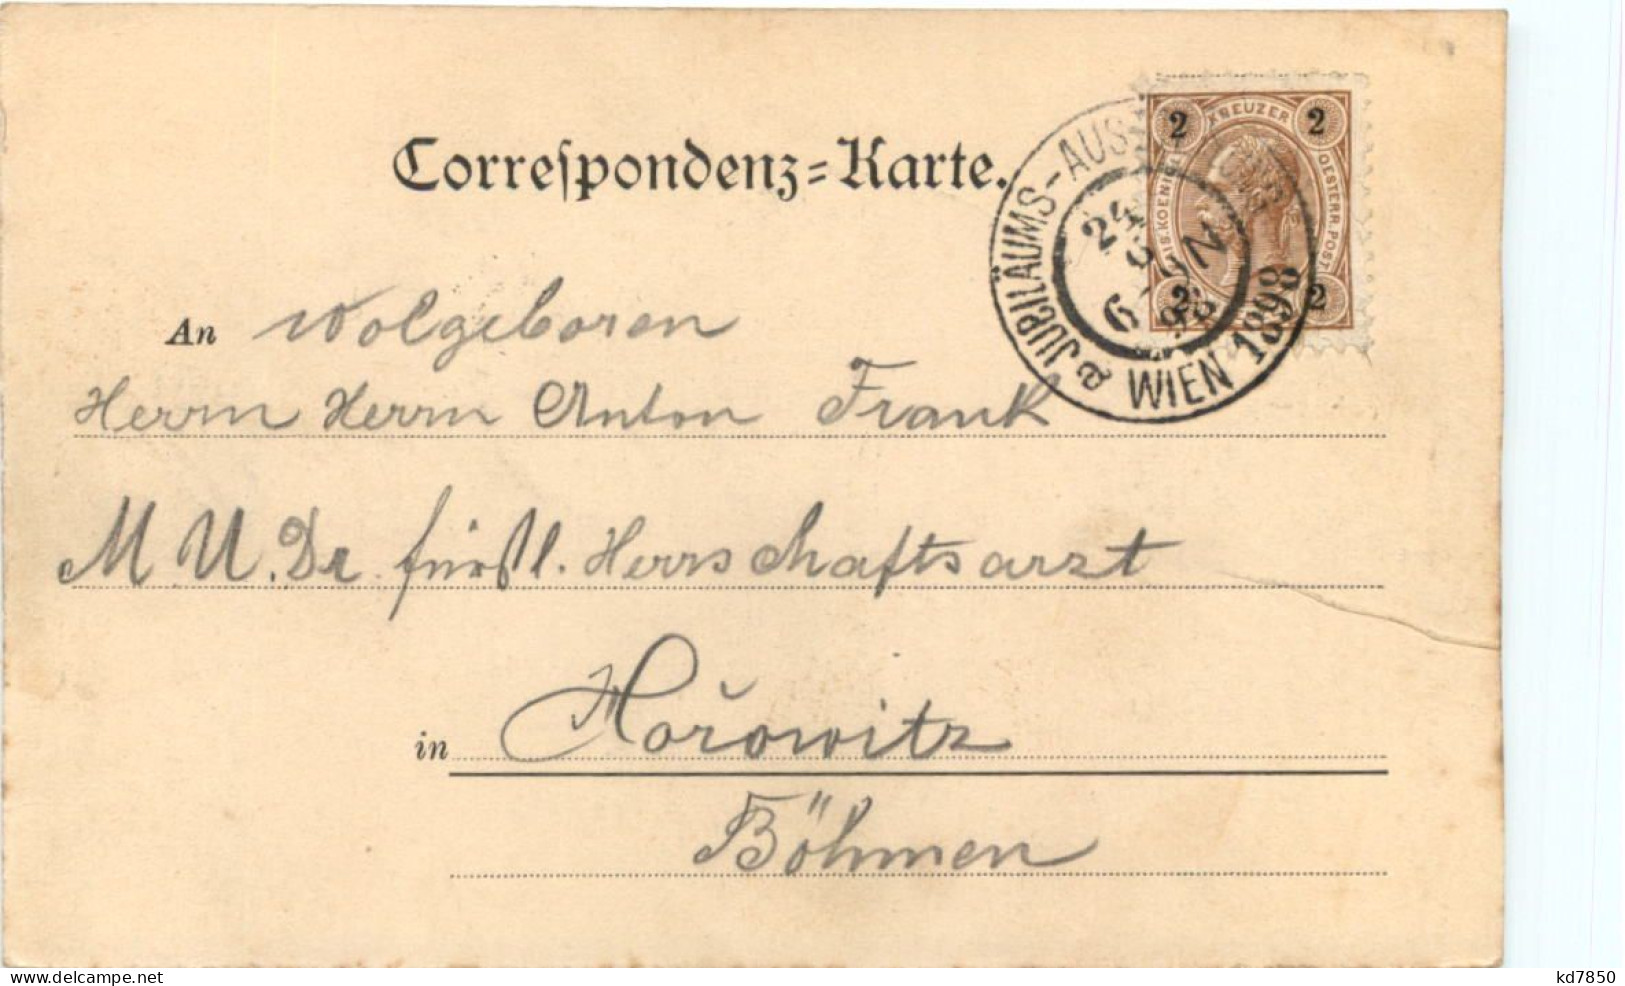 Correſpondenz=Karte.
2 KREUZER 2
OESTERR. POST
2 2
JUBILÄUMS-AUS
24
6 98
WIEN 1898
An Wolgeboren
Herrn Herrn Anton Frank
M.U.Dr. fürstl. Herrschaftsarzt
in Hořowitz
Böhmen
www.delcampe.net
kd7850